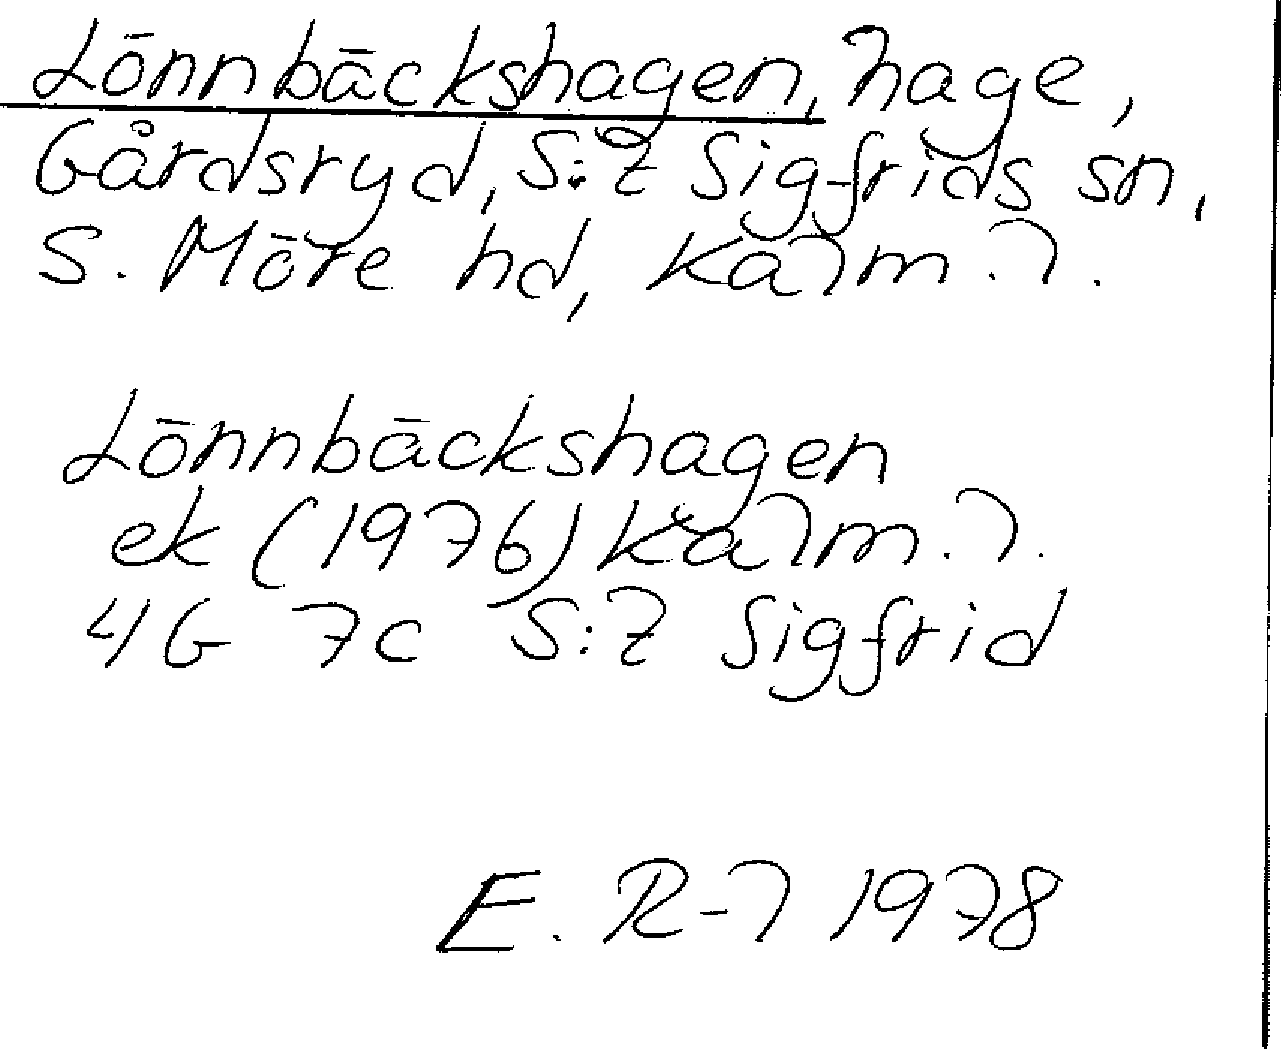 Lönnbäckshagen, hage,
Gårdsryd, S:t Sigfrids sn,
S. Möre hd, Kalm. l.
Lönnbäckshagen
ek (1976) Kalm. l.
4G 7c S:t Sigfrid
E. R-l 1978